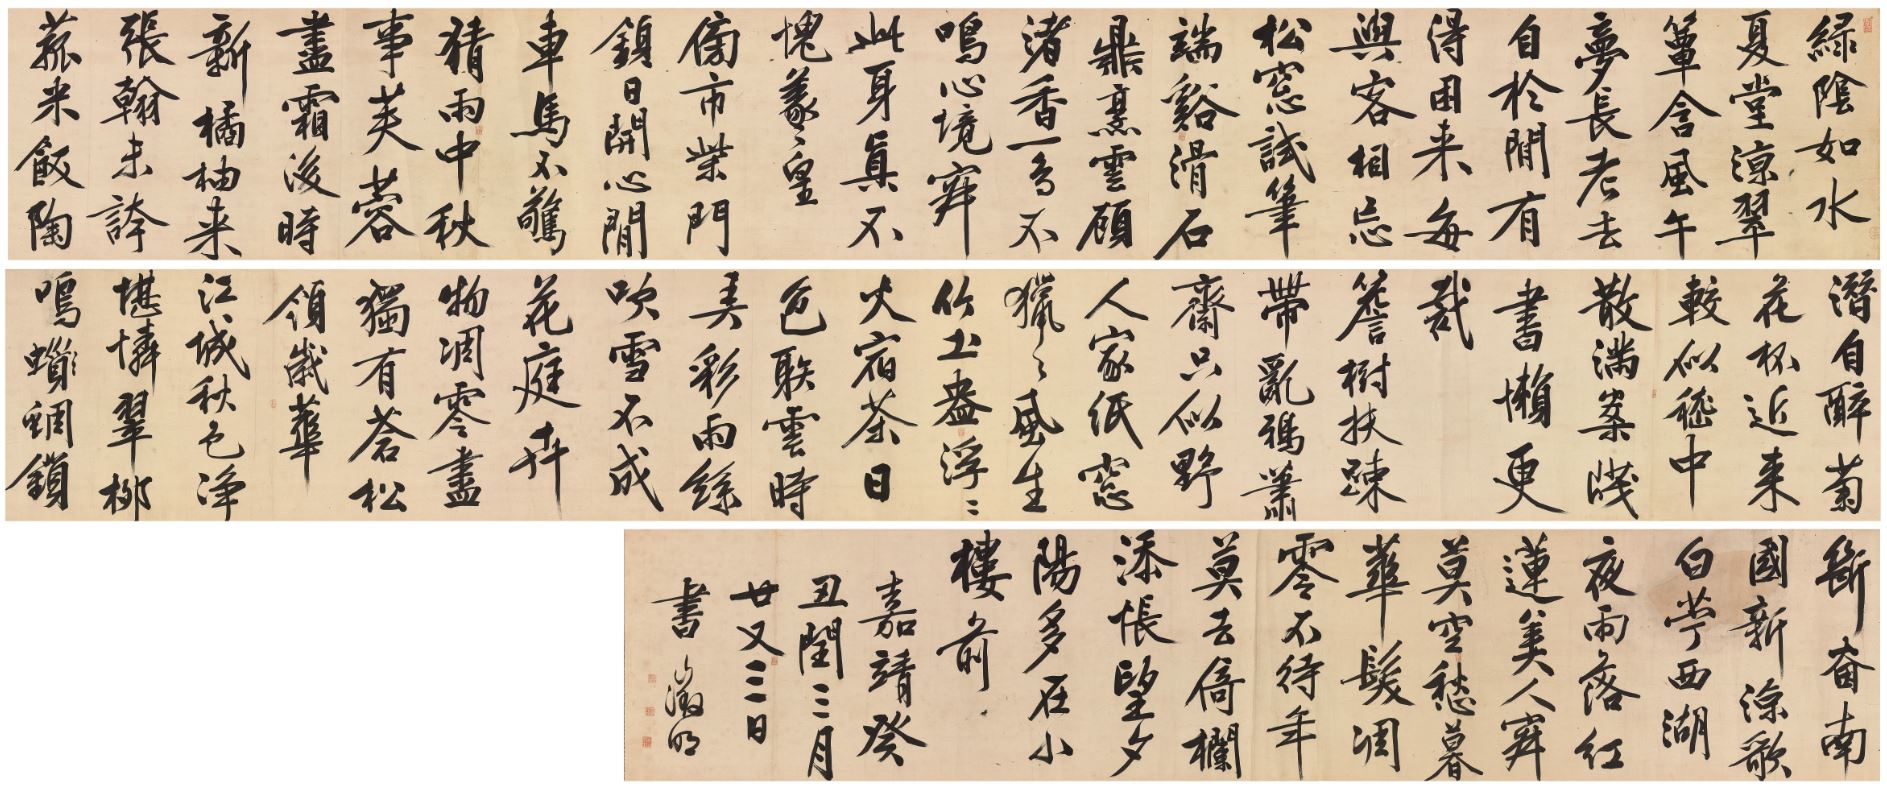 緑陰如水
夏堂涼翠
簟含風午
夢長老去
自於閒有
得困来每
與客相忘
松窓試筆
端谿滑石
鼎烹雲顧
渚香一鳥不
鳴心境寂
此身真不
愧羲〻皇
傍市柴門
鎮日開心閒
車馬不驚
猜雨中秋
事芙蓉
盡霜後時
新橘柚来
張翰未誇
菰米飯陶
潛自醉菊
花杯近来
較似嵇中
散滿案牋
書懶更
裁
簷樹扶踈
帶亂鴉蕭
齋只似野
人家紙窓
獵〻風生
竹土盎浮〻
火宿茶日
色聅雲時
弄彩雨絲
吹雪不成
花庭卉
物凋零盡
獨有蒼松
領歳華
江城秋色淨
堪憐翠柳
鳴蜩鎖
斷畨南
國新涼歌
白苧西湖
夜雨落紅
蓮美人寂
莫空愁暮
華髮凋
零不待年
莫去倚欄
添悵望夕
陽多在小
樓前
嘉靖癸
丑閏三月
廿又三日
書 徵明